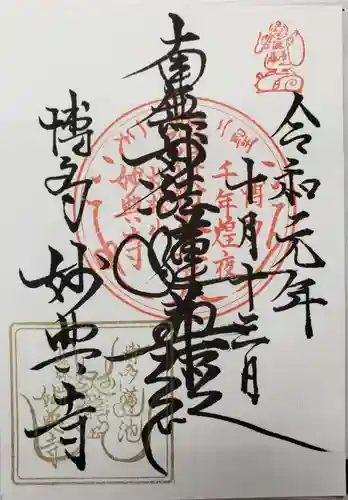 令和元年
十月十三日
南無妙法蓮華経
博多 妙典寺
千年煌夜
妙典寺
博多蓮池
妙典寺